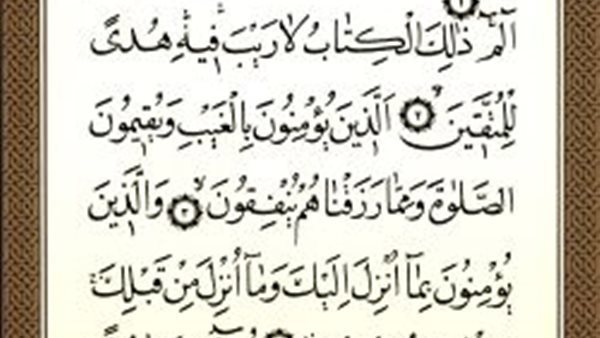 الٓمٓ ۝١ ذٰلِكَ الْكِتَابُ لَا رَيْبَ فِيهِ هُدًى
لِلْمُتَّقِينَ ۝٢ اَلَّذِينَ يُؤْمِنُونَ بِالْغَيْبِ وَيُقِيمُونَ
الصَّلٰوةَ وَمِمَّا رَزَقْنَاهُمْ يُنْفِقُونَ ۝٣ وَالَّذِينَ
يُؤْمِنُونَ بِمَٓا اُنْزِلَ اِلَيْكَ وَمَٓا اُنْزِلَ مِنْ قَبْلِكَ